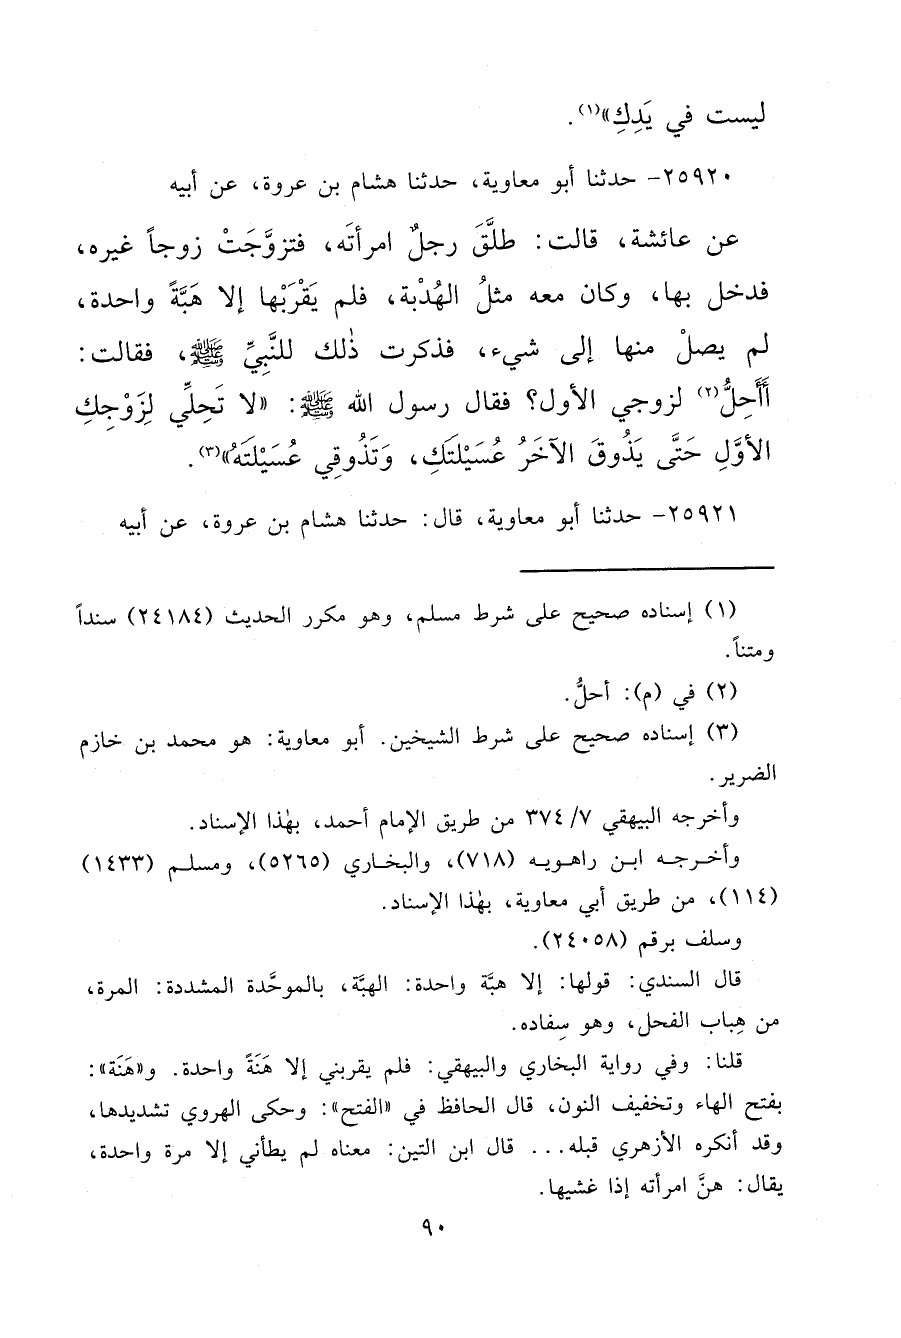 ليست في يَدِكِ»(١).
٢٥٩٢٠- حدثنا أبو معاوية، حدثنا هشام بن عروة، عن أبيه
عن عائشة، قالت: طلَّقَ رجلٌ امرأتَه، فتزوَّجَتْ زوجاً غيره،
فدخل بها، وكان معه مثلُ الهُدْبة، فلم يَقْرَبْها إلا هَبَّةً واحدة،
لم يصلْ منها إلى شيء، فذكرت ذٰلك للنَّبِيِّ ﷺ، فقالت:
أَأَحِلُّ(٢) لزوجي الأول؟ فقال رسول الله ﷺ: «لا تَحِلِّي لِزَوْجِكِ
الأوَّلِ حَتَّى يَذُوقَ الآخَرُ عُسَيْلتَكِ، وَتَذُوقِي عُسَيْلتَهُ»(٣).
٢٥٩٢١- حدثنا أبو معاوية، قال: حدثنا هشام بن عروة، عن أبيه
(١) إسناده صحيح على شرط مسلم، وهو مكرر الحديث (٢٤١٨٤) سنداً
ومتناً.
(٢) في (م): أحلُّ.
(٣) إسناده صحيح على شرط الشيخين. أبو معاوية: هو محمد بن خازم
الضرير.
وأخرجه البيهقي ٣٧٤/٧ من طريق الإمام أحمد، بهٰذا الإسناد.
وأخرجه ابن راهويه (٧١٨)، والبخاري (٥٢٦٥)، ومسلم (١٤٣٣)
(١١٤)، من طريق أبي معاوية، بهٰذا الإسناد.
وسلف برقم (٢٤٠٥٨).
قال السندي: قولها: إلا هبَّة واحدة: الهبَّة، بالموحَّدة المشددة: المرة،
من هِباب الفحل، وهو سِفاده.
قلنا: وفي رواية البخاري والبيهقي: فلم يقربني إلا هَنَةً واحدة. و«هَنَة»:
بفتح الهاء وتخفيف النون، قال الحافظ في «الفتح»: وحكى الهروي تشديدها،
وقد أنكره الأزهري قبله... قال ابن التين: معناه لم يطأني إلا مرة واحدة،
يقال: هنَّ امرأته إذا غشيها.
٩٠